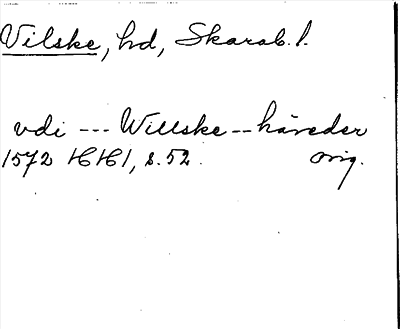 Vilske, hd, Skarab. l.
vdi --- Willske -- häreder
1572 HH1, s. 52. orig.